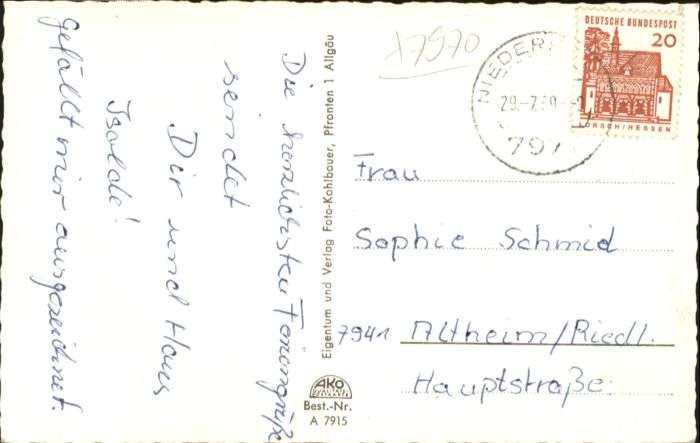 Die herzlichsten Feriengrüße
sendet
Dir und Hans
Isolde!
Gefällt mir ausgezeichnet.
Eigentum und Verlag Foto-Kohlbauer, Pfronten 1 Allgäu
AKO
Best.-Nr.
A 7915
17970
DEUTSCHE BUNDESPOST
20
LORSCH/HESSEN
29.-7.69
797
Frau
Sophie Schmid
7941 Altheim/Riedl.
Hauptstraße.